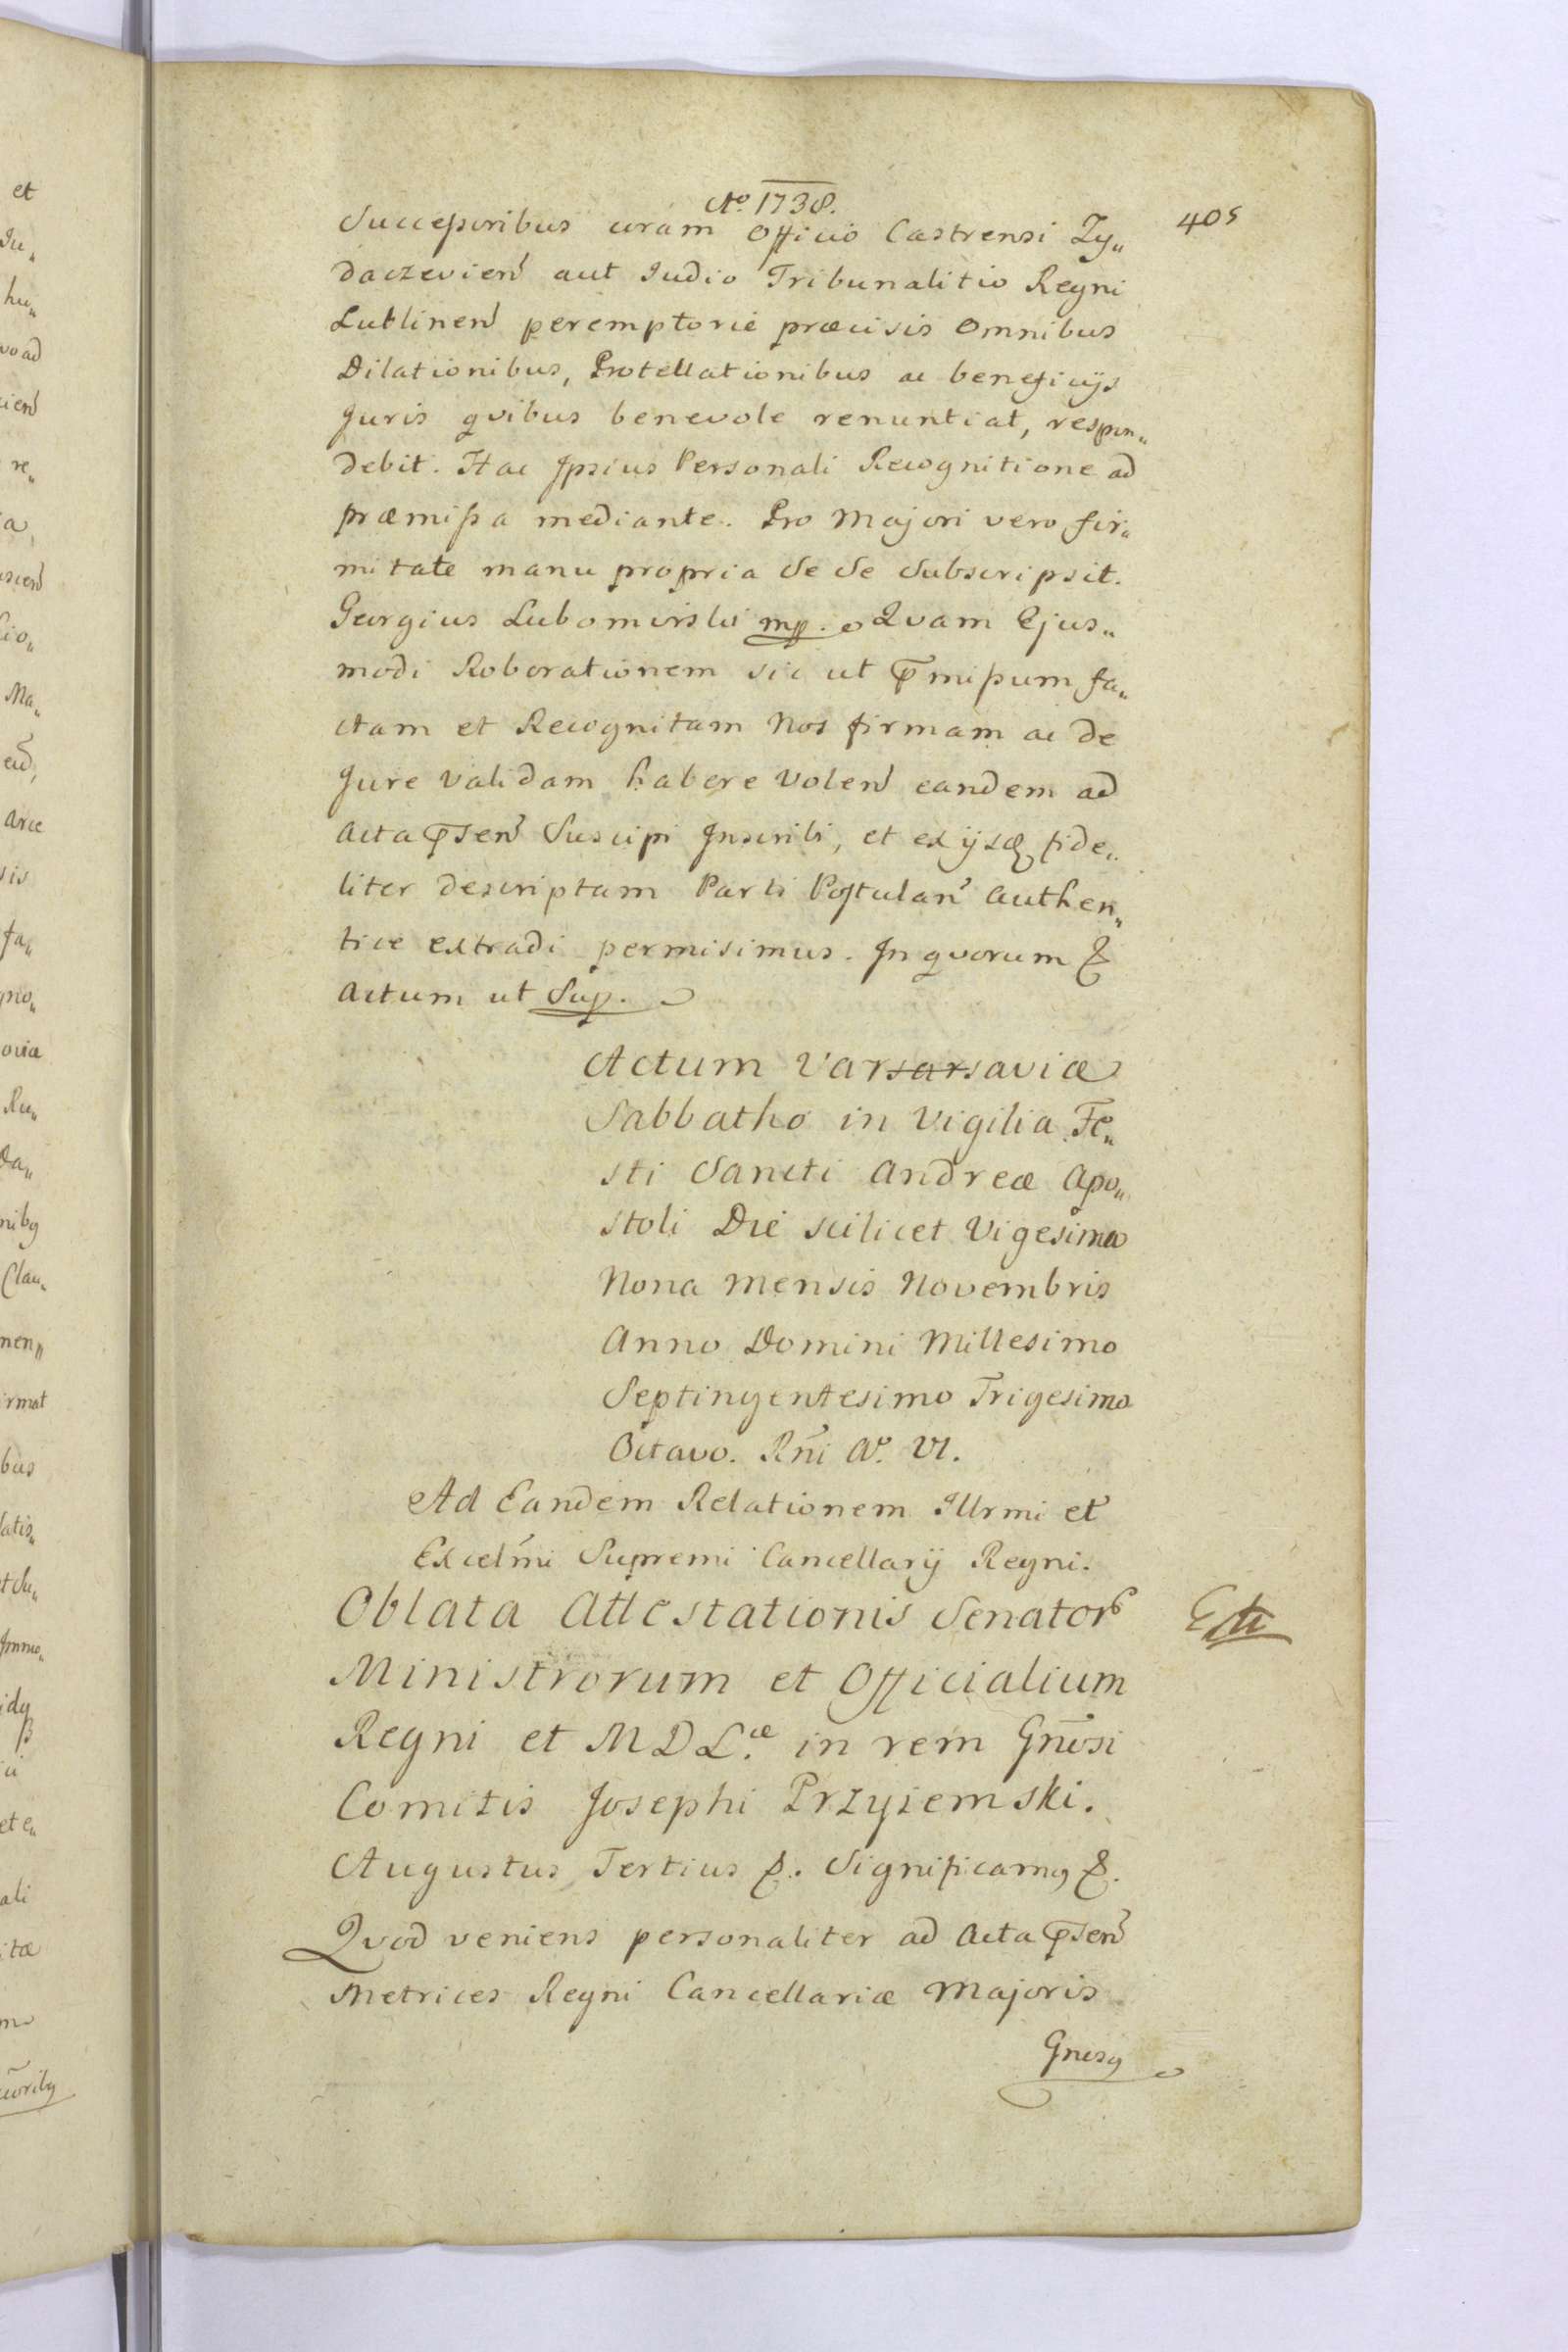 Aº 1738.
405
Successoribus coram Officio Castrensi Zy„
daczevien aut Iudio Tribunalitio Regni
Lublinen peremptorie præcisis Omnibus
Dilationibus, Protellationibus ac beneficijs
Juris qvibus benevole renuntiat, respon„
debit. Hac Jpsius Personali Recognitione ad
præmissa mediante. Pro Majori vero fir„
mitate manu propria Se Se Subscripsit.
Georgius Lubomirski mp. Qvam Ejus„
modi Roborationem sic ut p̄missum fa„
ctam et Recognitam Nos firmam ac de
Jure Validam habere Volen eandem ad
Acta p̄sen Suscipi Jnscribi, et ex ijsdē fide„
liter descriptam Parti Postulan authen„
tice extradi permisimus. Jn qvorum &
Actum ut Sup.
Actum Varsarsaviæ
Sabbatho in Vigilia Fe„
sti Sancti Andreæ Apo„
stoli Die scilicet Vigesima
Nona Mensis Novembris
Anno Domini Millesimo
Septingentesimo Trigesimo
Octavo. Rn̄i Aº. VI.
Ad Eandem Relationem Illrmi et
Excelm̄i Supremi Cancellarij Regni.
Oblata Attestationis Senator
Ministrorum et Officialium
Regni et M D L.æ in rem Gn̄osi
Comitis Josephi Przyiemski.
Augustus Tertius &. Significamꝯ &.
Qvod veniens personaliter ad Acta p̄sen
Metrices Regni Cancellariæ Majoris
Gnosꝯ
et
hu„
vo ad
re„
a
Ma„
arce
sis
fa„
gno„
oviæ
Ru„
da„
Clau„
men„
irmat
bus
latis„
et e„
ali
itæ